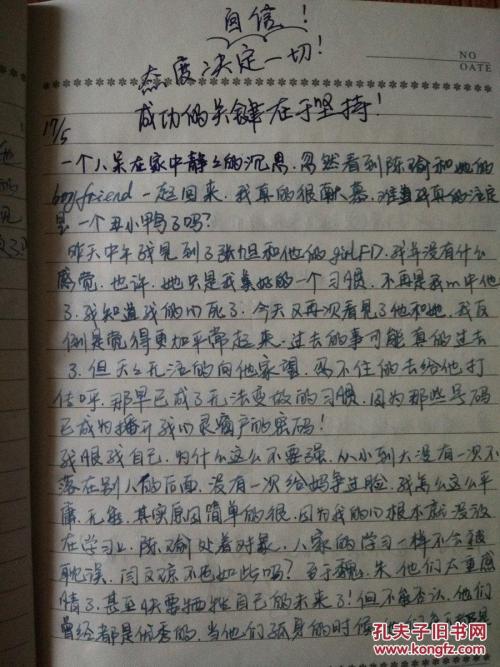 自信！
态度决定一切！
成功的关键在于坚持！
NO
DATE
17/5
一个人呆在家中静静的沉思，忽然看到陈瑜和她的
boyfriend 一起回来，我真的很羡慕，难道我真的注定
是一个丑小鸭了吗？
昨天中午我见到了张旭和他的girlFD，我并没有什么
感觉，也许，她只是我美好的一个习惯，不再是我m中他
了，我知道我的心死了，今天又再次看见了他和她，我反
倒是觉得更加平常起来，过去的事可能真的过去
了，但天天无法的向他家望，忍不住的去给他打
估呼，那早已成了无法变故的习惯，因为那些号码
已成为播开我心灵窗户的密码！
我恨我自己，为什么这么不要强，从小到大没有一次不
落在别人的后面，没有一次给妈争过脸，我怎么这么平
庸，无能，其实原因简单的很，因为我的心根本就没放
在学习上，陈瑜处着对象，人家的学习一样不会被
耽误，闫文琼不也如此吗？至于魏、朱他们太重感
情了，甚至快要牺牲自己的未来了！但不能否认，他们
曾经都是优秀的，当他们孤身的时候
孔夫子旧书网
kongfz.com